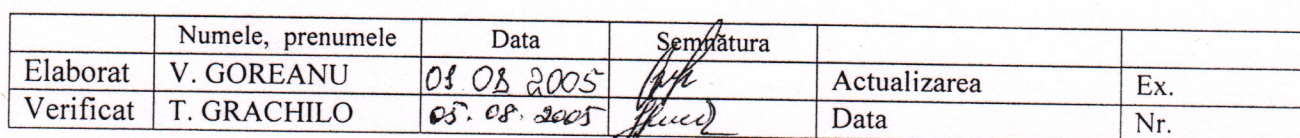 Numele, prenumele Data Semnătura
Elaborat V. GOREANU 2005 Actualizarea Ex.
Verificat T. GRACHILO 05. 08. 2005 Data Nr.